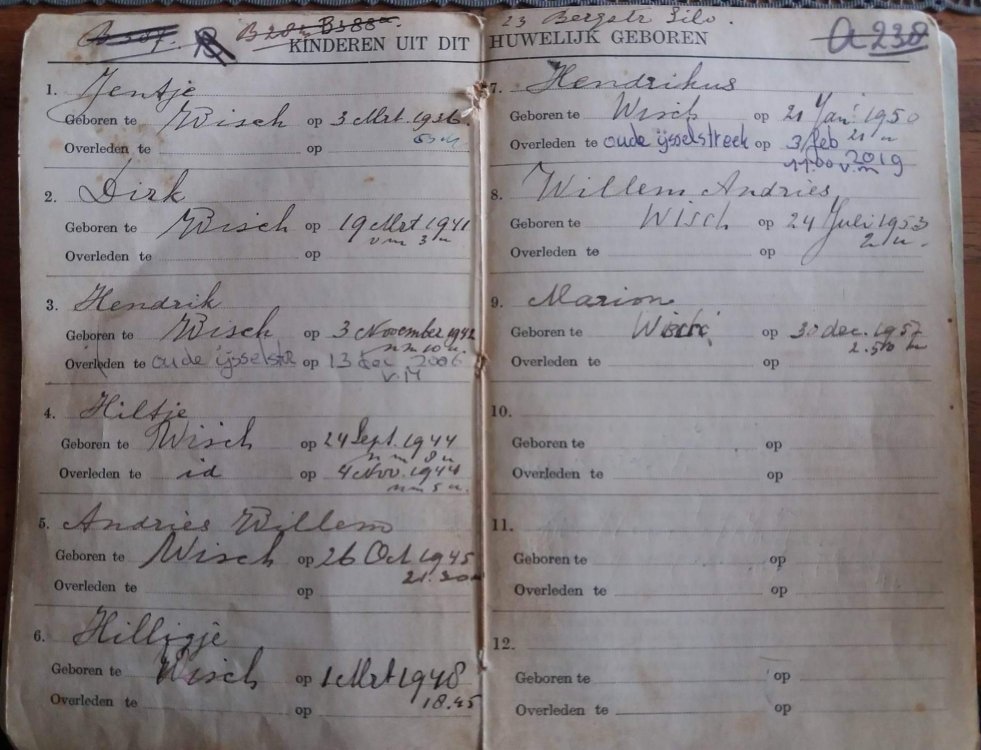 B 388a. 23 Bergstr Silv.
KINDEREN UIT DIT HUWELIJK GEBOREN
A 238
1. Jentje
Geboren te Wisch op 3 Mrt. 1936
Overleden te op
2. Dirk
Geboren te Wisch op 19 Mrt 1941
vm 3 u
Overleden te op
3. Hendrik
Geboren te Wisch op 3 November 1942
nm 10 u.
Overleden te oude ijsselstr op 13 dec 2006
V.M
4. Hiltje
Geboren te Wisch op 24 Sept. 1944
nm 8 u
Overleden te id op 4 Nov. 1944
nm 5 u.
5. Andries Willem
Geboren te Wisch op 26 Oct 1945
21.30
Overleden te op
6. Hilligje
Geboren te Wisch op 1 Mrt 1948
18.45
Overleden te op
7. Hendrikus
Geboren te Wisch op 21 Jan. 1950
21 u
Overleden te oude ijsselstreek op 3 feb 2019
11.00 v.m
8. Willem Andries
Geboren te Wisch op 24 Juli 1953
2 u.
Overleden te op
9. Marion
Geboren te Wisch op 30 dec. 1957
Overleden te op
10.
Geboren te op
Overleden te op
11.
Geboren te op
Overleden te op
12.
Geboren te op
Overleden te op